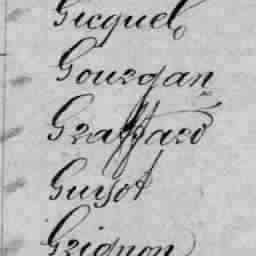 Gicquel
Gourgan
Graffard
Guyot
Grignon